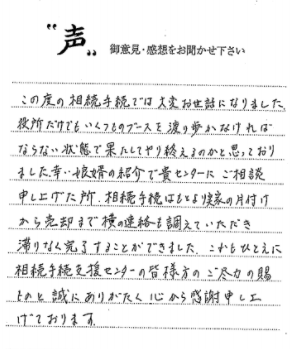 "声" 御意見・感想をお聞かせ下さい
この度の相続手続では大変お世話になりました。
役所だけでもいくつものブースを渡り歩かなければ
ならない状態で果たしてやり終えるのかと思っており
ました。幸い娘婿の紹介で貴センターにご相談
申し上げた所、相続手続はもとより実家の片付け
から売却まで横の連絡も調えていただき
滞りなく完了することができました。これもひとえに
相続手続支援センターの皆様方のご尽力の賜
ものと誠にありがたく心から感謝申し上
げております。